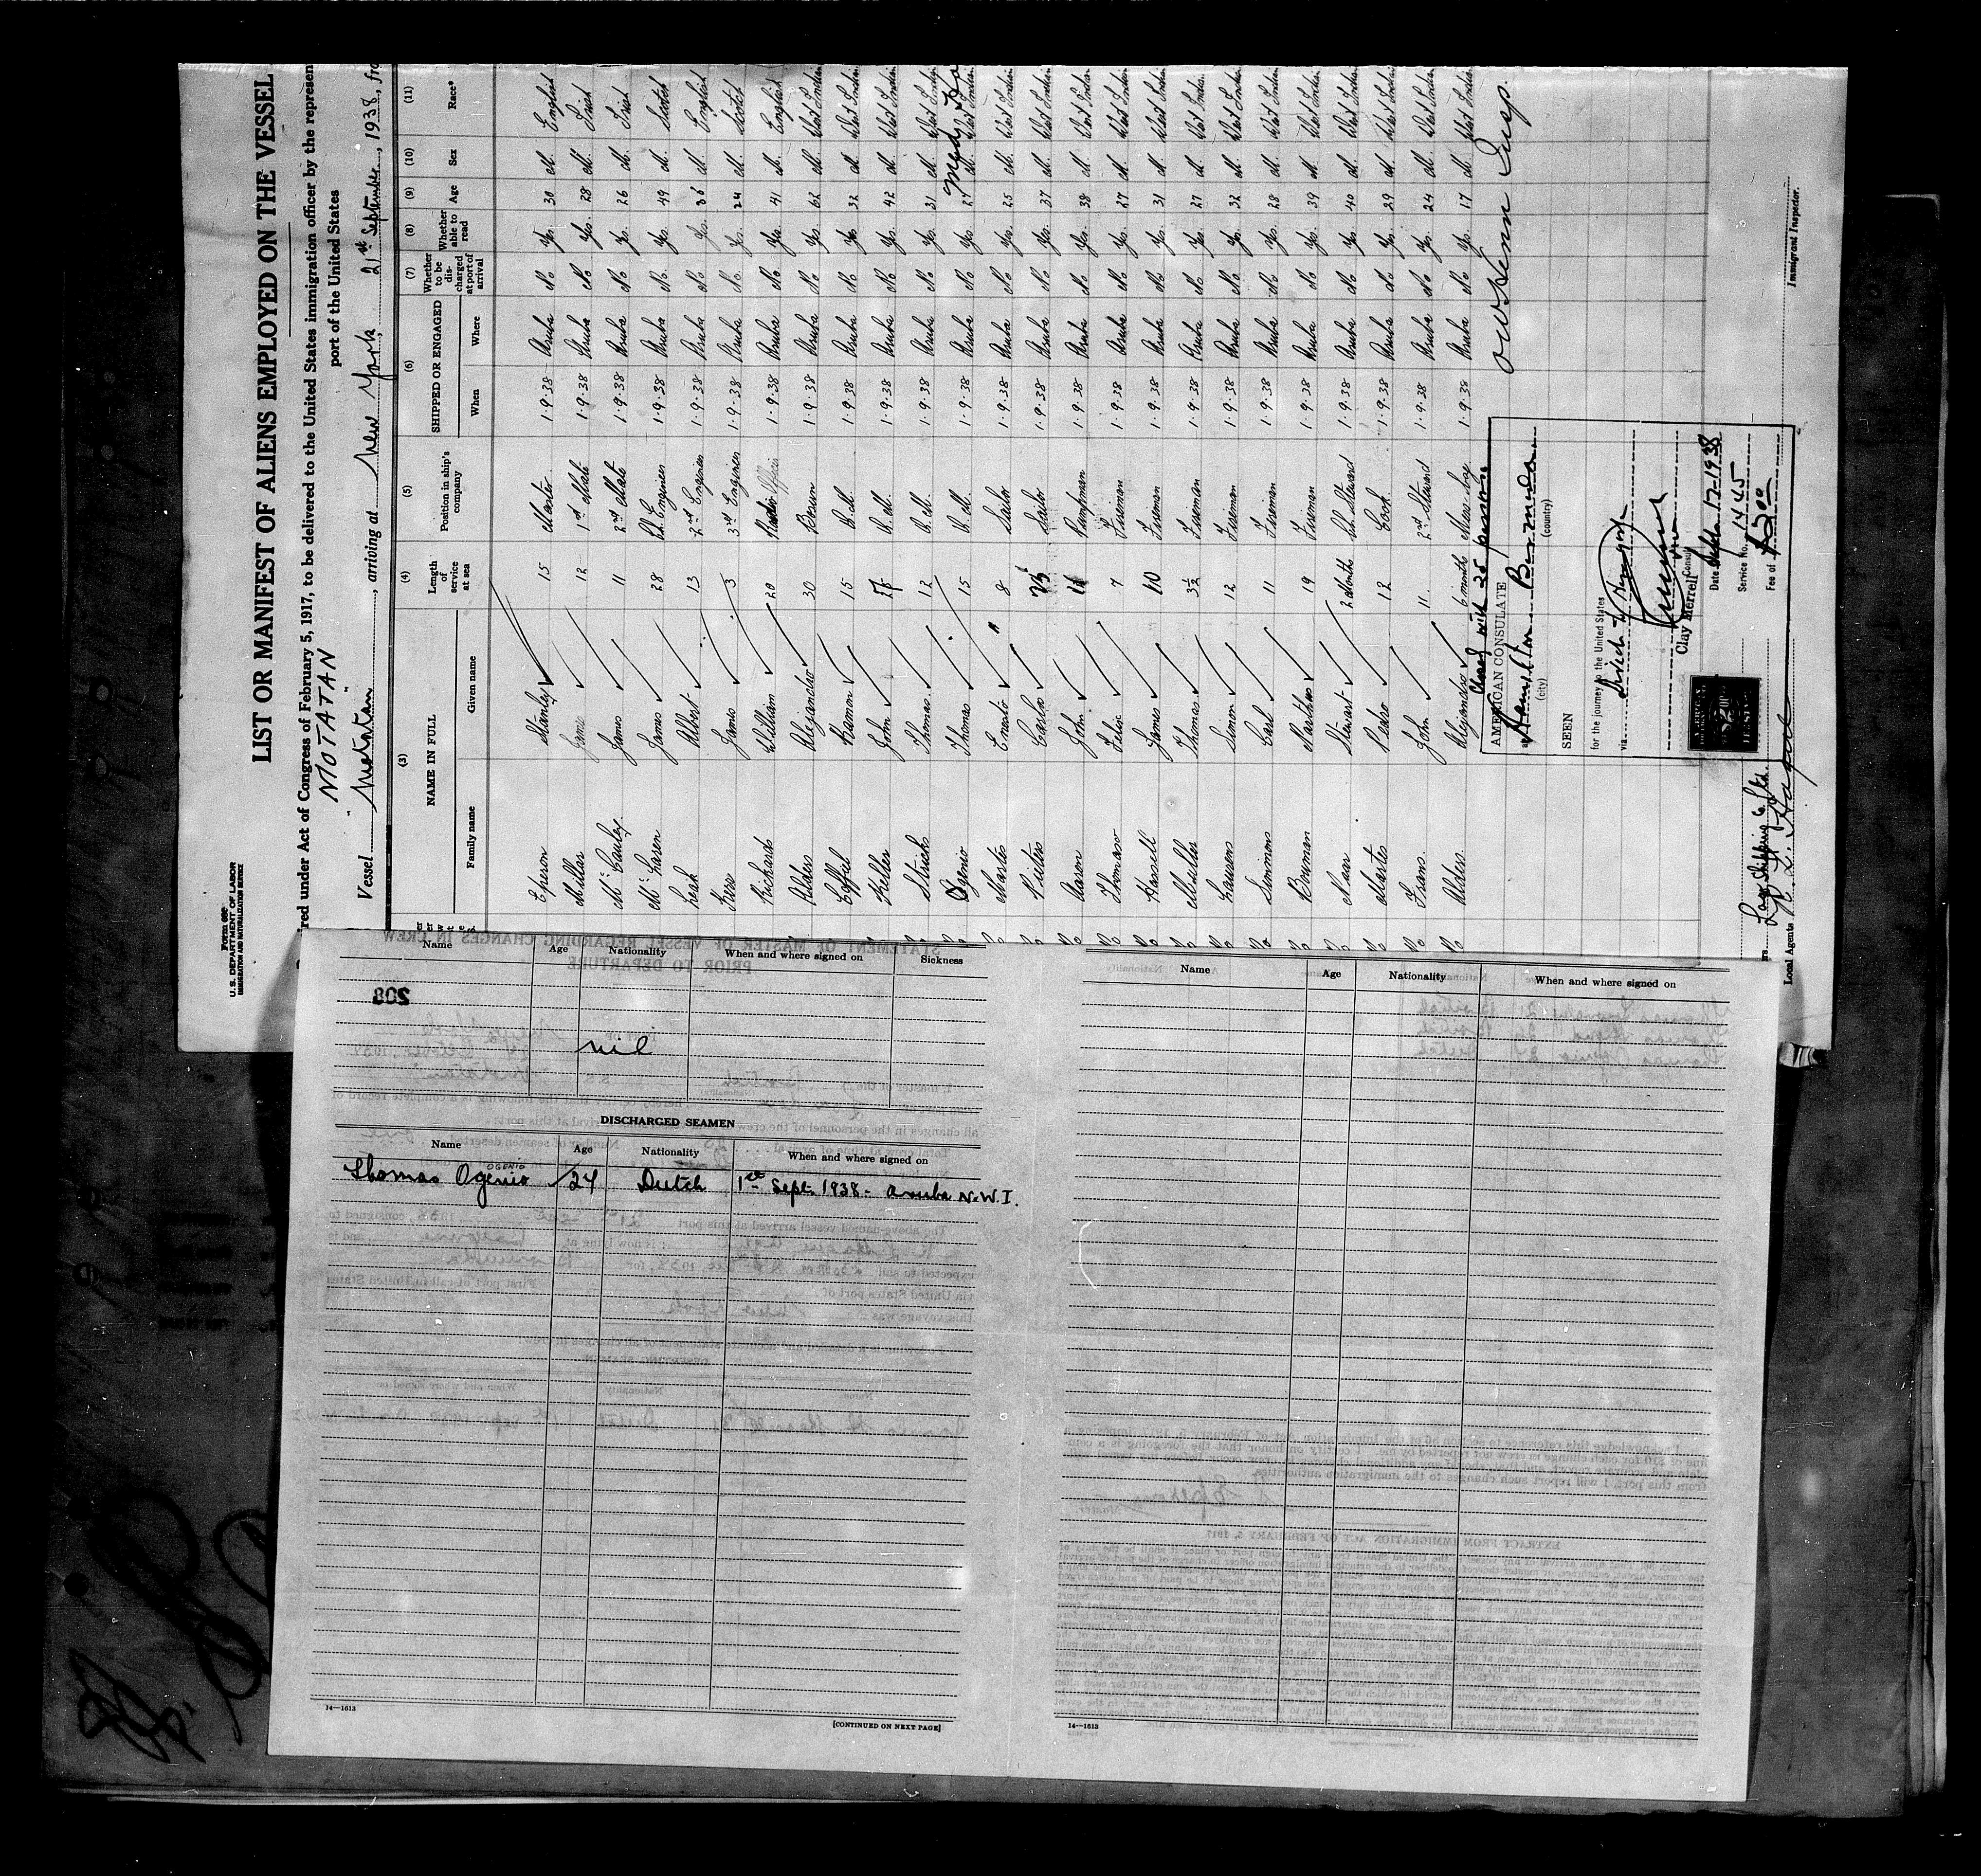 Form 680
U. S. DEPARTMENT OF LABOR
IMMIGRATION AND NATURALIZATION SERVICE
LIST OR MANIFEST OF ALIENS EMPLOYED ON THE VESSEL
red under Act of Congress of February 5, 1917, to be delivered to the United States immigration officer by the represen
port of the United States
NIOTATAN
Vessel "Niotatan", arriving at New York 21st September, 1938, fro
(3) (4) (5) (6) (7) (8) (9) (10) (11)
NAME IN FULL Length of service at sea Position in ship's company SHIPPED OR ENGAGED Whether to be discharged at port of arrival Whether able to read Age Sex Race*
Family name Given name When Where
Eperon Stanley 15 Master 1.9.38 Aruba No Yes. 30 M. English
Millar James 12 1st Mate 1.9.38 Aruba No Yes. 28 M. Irish
McCauley James 11 2nd Mate 1.9.38 Aruba No Yes. 26 M. Irish
McLaren James 28 Ch. Engineer 1.9.38 Aruba No. Yes. 49 M. Scotch
Leak Albert 13 2nd Engineer 1.9.38 Aruba No Yes. 36 M. English
Kerr James 3 3rd Engineer 1.9.38 Aruba No. Yes. 24 M. Scotch
Richards William 20 Radio Officer 1.9.38 Aruba No Yes. 41 M. English
Alders Alejandro 30 Bosun 1.9.38 Aruba No Yes. 62 M. West Indian
Coffil Ramon 15 Q.M. 1.9.38 Aruba No Yes. 32 M. West Indian
Keller John 27 Q.M. 1.9.38 Aruba No Yes. 42 M West Indian
Strick Thomas. 12 Q.M. 1.9.38 Aruba No Yes. 31 M. West Indian
Ogenio Thomas 15 Q.M. 1.9.38 Aruba No Yes. 24 M. West Indian
Martes Ernesto 8 Sailor 1.9.38 Aruba No Yes. 25 M. West Indian
Pieters Carlos Sailor 1.9.38 Aruba No Yes. 37 M. West Indian
Aaron John 11 Pumpman 1.9.38 Aruba No Yes. 38 M West Indian
Thomas Felix 7 Fireman 1.9.38 Aruba No Yes. 27 M. West Indian
Hassell James 10 Fireman 1.9.38 Aruba No Yes. 31 M West Indian
Muller Thomas. 3½ Fireman 1.9.38 Aruba No Yes. 27 M West Indian
Lausens Simon 12 Fireman 1.9.38 Aruba No. Yes. 32 M. West Indian
Simmons Carl 11 Fireman 1.9.38 Aruba No Yes. 28 M. West Indian
Bowman Matthews 19 Fireman 1.9.38 Aruba No Yes. 39 M. West Indian
Stewart 2 Months Ch. Steward 1.9.38 Aruba No Yes. 40 M West Indian
Martes Pedro 12 Cook 1.9.38 Aruba No Yes. 29 M West Indian
Frans. John 11. 2nd Steward 1.9.38 Aruba No Yes. 24 M. West Indian
Alders. Alejandro 6 months Mess boy 1.9.38 Aruba No Yes. 17 M. West Indian
Closed with 25 persons.
AMERICAN CONSULATE
at Hamilton Bermuda
(city) (country)
SEEN
for the journey to the United States
via
Clay Merrell
Consul
Date Sept. 17-1938
Service No. 1445
Fee of $2.00
Insp.
Immigrant Inspector.
Lago Shipping Co. Ltd.
Local Agents R. L. Hague
Name Age Nationality When and where signed on Sickness
208
nil
DISCHARGED SEAMEN
Name Age Nationality When and where signed on
OGENIO
Thomas Ogenio 24 Dutch 1st Sept. 1938 - Aruba N.W.I.
14—1613
[CONTINUED ON NEXT PAGE]
Name Age Nationality When and where signed on
14—1613